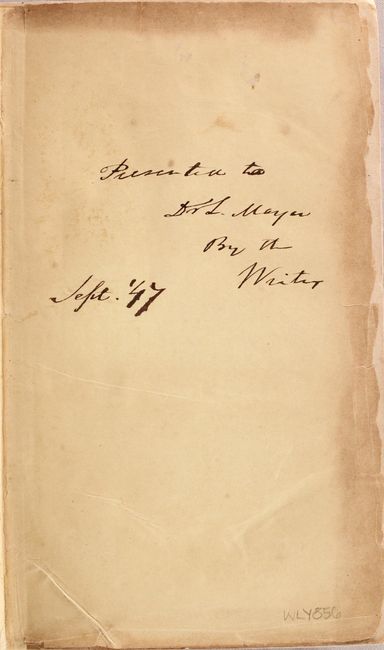 Presented to
Dr L. Mayer
By th
Writer
Sept. '47
WLY856